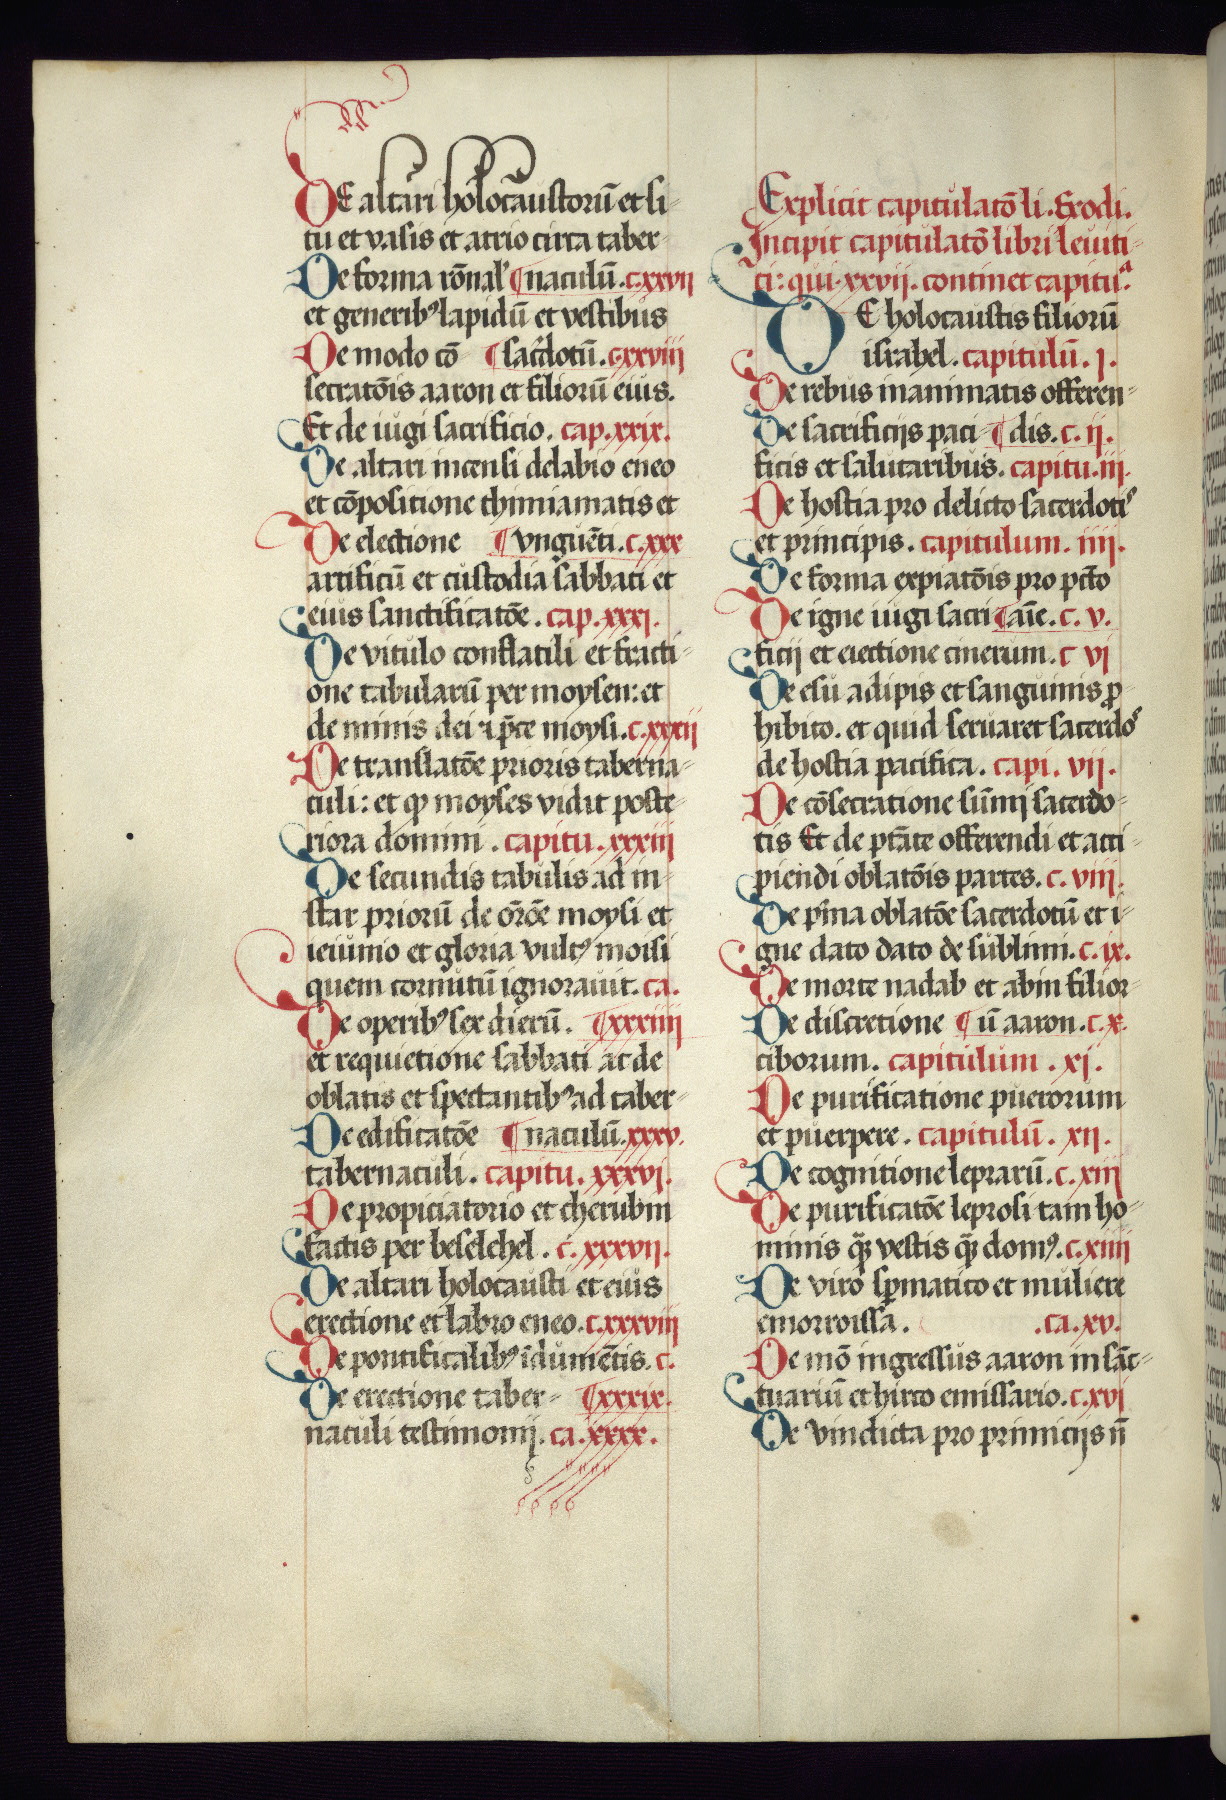 DE altari holocaustorū et si-
tu et vasis et atrio circa taber-
De forma rōnal' ¶ naculū . c.xxvii
et generibꝰ lapidū et vestibus
De modo cō ¶ sac̄dotū . c.xxviii
secratōis aaron et filiorū eius.
Et de iugi sacrificio . cap. xxix.
De altari incensi de labio eneo
et cōpositione thimiamatis et
De electione ¶ vnguēti . c.xxx
artificū et custodia sabbati et
eius sanctificatōe . cap. xxxi.
De vitulo conflatili et fracti-
one tabularū per moysen: et
de minis dei ⁊ p̄ce moysi. c.xxxii
De translatōe prioris taberna-
culi: et qꝫ moyses vidit poste-
riora domini . capitu. xxxiii
De secundis tabulis ad in-
star priorū de orōe moysi et
ieiunio et gloria vultꝰ moisi
quem cornutū ignorauit. ca.
De operibꝰ sex dierū . ¶ xxxiiii
et requietione sabbati ac de
oblatis et spectantibꝰ ad taber-
De edificatōe ¶ naculū . xxxv.
tabernaculi . capitu. xxxvi.
De propiciatorio et cherubin
factis per beselehel . c. xxxvii.
De altari holocausti et eius
erectione et labro eneo. c.xxxviii
De pontificalibꝰ īdumētis. c.
De erectione taber- ¶ xxxix.
naculi testimonij. ca. xxxx.
Explicit capitulatō li. Exodi.
Incipit capitulatō libri leuiti-
ci: qui. xxvii. continet capituᵃ.
DE holocaustis filiorū
israhel. capitulū. i.
De rebus inanimatis offeren-
De sacrificijs paci- ¶ dis. c. ii.
ficis et salutaribus. capitu. iii.
De hostia pro delicto sacerdotꝭ
et principis. capitulum. iiii.
De forma expiatōis pro pctō
De igne iugi sacri ¶ aīe. c. v.
ficij et eiectione cinerum. c vi
De esu adipis et sanguinis ꝓ-
hibito. et quid seruaret sacerdoˢ
de hostia pacifica. capi. vii.
De cōsecratione sūmi sacerdo-
tis Et de ptāte offerendi et acci-
piendi oblatōis partes. c. viii.
De p̄ma oblatōe sacerdotū et i-
gne dato dato de sublimi. c. ix.
De morte nadab et abiu filior-
De discretione ¶ ū aaron. c. x.
ciborum. capitulum . xi.
De purificatione puerorum
et puerpere. capitulū. xii.
De cognitione leprarū. c. xiii
De purificatōe leprosi tam ho-
minis qꝫ vestis qꝫ domꝰ. c.xiiii
De viro sꝑmatico et muliere
emorroissa. ca. xv.
De mō ingressus aaron in sāc-
tuariū et hirco emissario. c.xvi
De vindicta pro primicijs nō